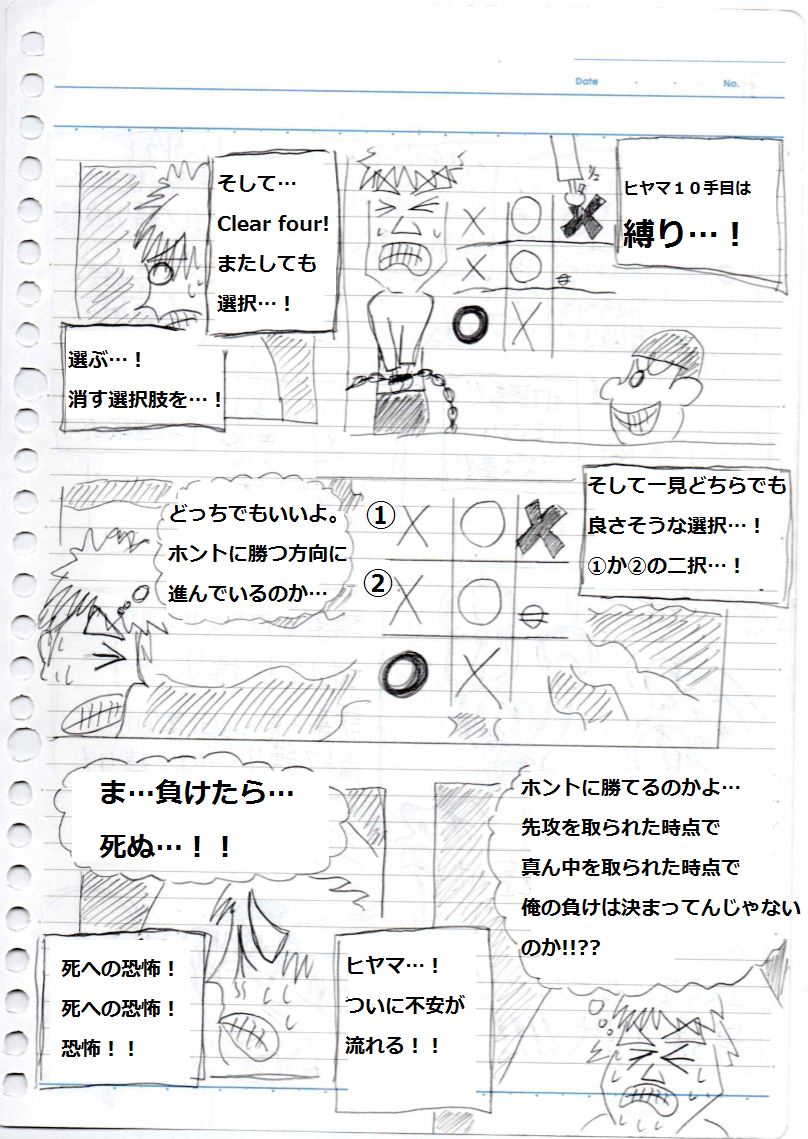 Date
No.
ヒヤマ１０手目は
縛り…！
1/2
そして…
Clear four!
またしても
選択…！
選ぶ…！
消す選択肢を…！
× ○ ×
× ○
○ ×
そして一見どちらでも
良さそうな選択…！
①か②の二択…！
① × ○ ×
② × ○
○ ×
どっちでもいいよ。
ホントに勝つ方向に
進んでいるのか…
ホントに勝てるのかよ…
先攻を取られた時点で
真ん中を取られた時点で
俺の負けは決まってんじゃない
のか!!??
ヒヤマ…！
ついに不安が
流れる！！
ま…負けたら…
死ぬ…！！
死への恐怖！
死への恐怖！
恐怖！！